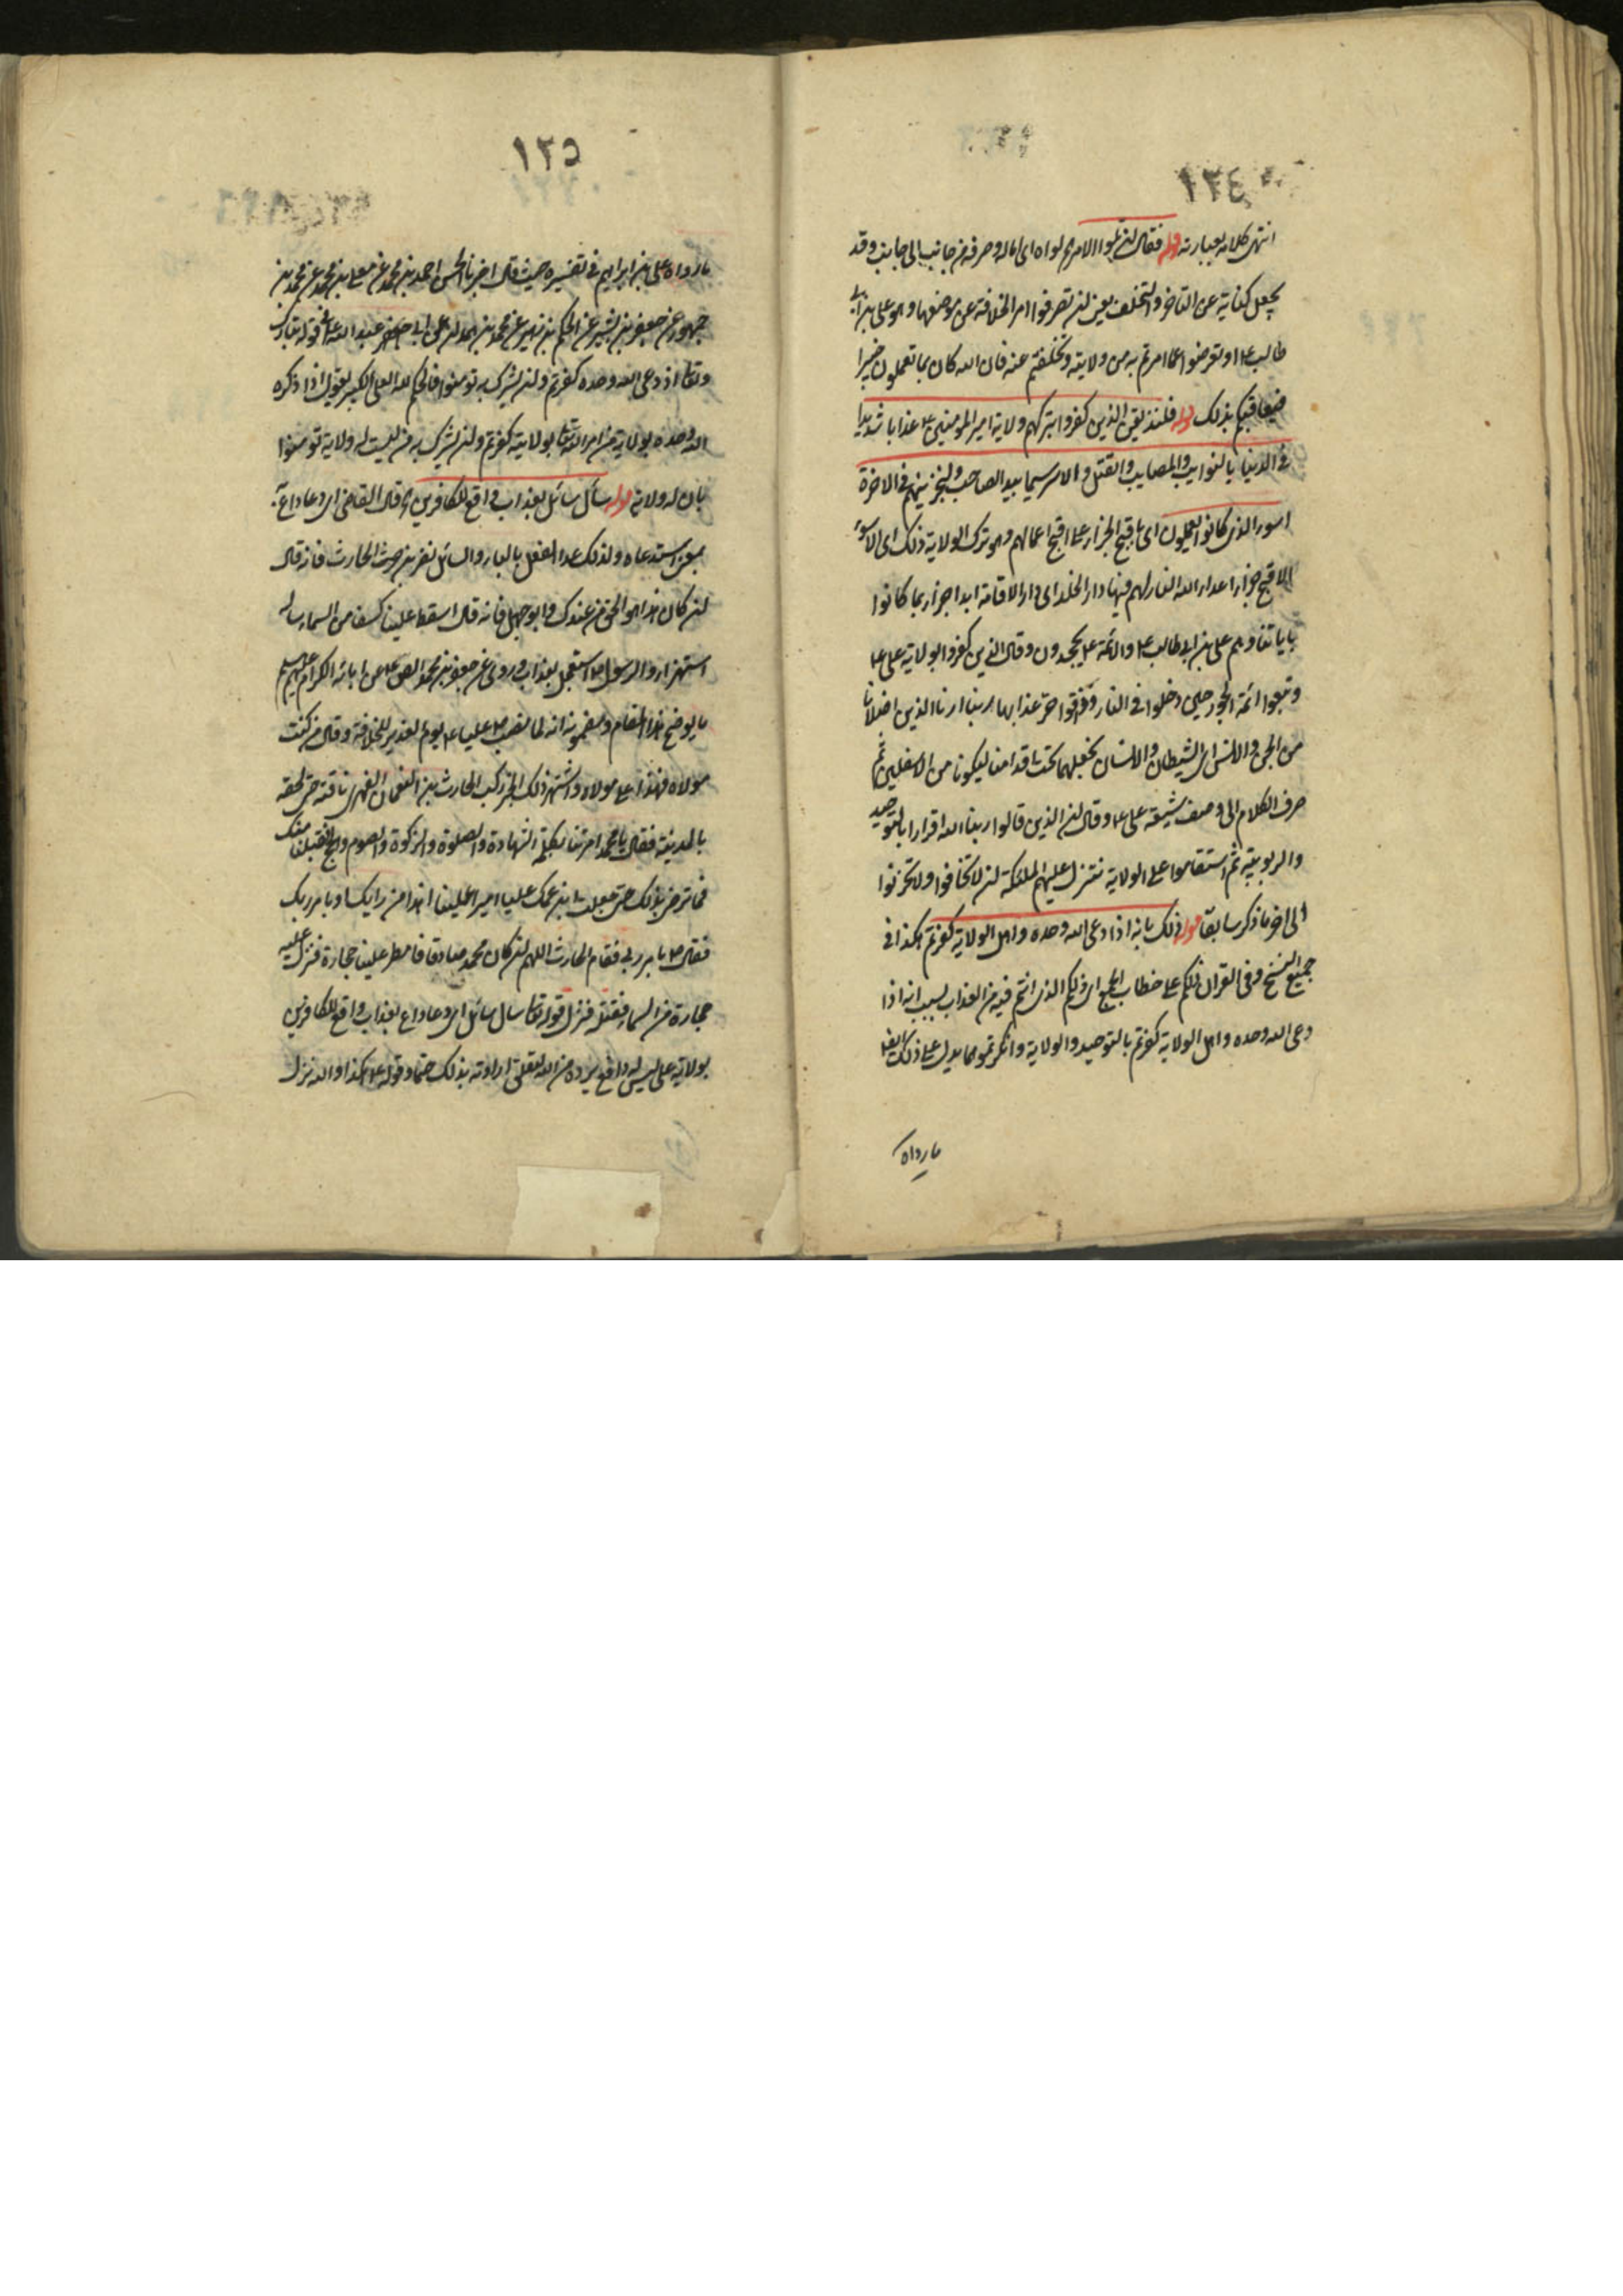 ١٢٤
انتهى كلامه بعبارته قوله فقال ان تلووا الامر يق لواه اى اماله وصرفه من جانب الى جانب وقد
يجعل كناية عن التاخر والتخلف يعنى ان تصرفوا امر الخلافة عن موضعها وهو على بن ابى
طالب ع او تعرضوا عما امرتم به من ولايته وتخلفتم عنه فان الله كان بما تعملون خبيرا
فيعاقبكم بذلك قوله فلنذيقن الذين كفروا بتركهم ولاية امير المؤمنين ع عذابا شديدا
فى الدنيا بالنوايب والمصايب والقتل والاسر سيما بيد الصاحب ولنجزينهم فى الاخرة
اسوء الذى كانوا يعملون اى باقبح الجزاء على اقبح اعمالهم وهو ترك الولاية ذلك اى الاسوء
الاقبح جزاء اعداء الله النار لهم فيها دار الخلد اى دار الاقامة ابدا جزاء بما كانوا
باياتنا وهم على بن ابى طالب ع والائمة ع يجحدون وقال الذين كفروا بولاية على ع
وتبعوا ائمة الجور حين دخلوا فى النار وذاقوا حر عذابها ربنا ارنا الذين اضلانا
من الجن والانس اى الشيطان والانسان نجعلهما تحت اقدامنا ليكونا من الاسفلين ثم
صرف الكلام الى وصف شيعة على ع وقال ان الذين قالوا ربنا الله اقرارا بالتوحيد
والربوبية ثم استقاموا على الولاية تتنزل عليهم الملئكة ان لا تخافوا ولا تحزنوا
الى اخر ما ذكر سابقا قوله ذلك بانه اذا دعى الله وحده واهل الولاية كفرتم هكذا فى
جميع النسخ وفى القران ذلكم على خطاب الجمع اى ذلكم الذى انتم فيه من العذاب بسبب انه اذا
دعى الله وحده واهل الولاية كفرتم بالتوحيد والولاية وانكرتموهما يدل على ذلك ايضا
ما رواه
١٢٥
ما رواه على بن ابراهيم فى تفسيره حيث قال اخبرنا الحسن احمد بن محمد عن معلى بن محمد عن محمد بن
جمهور عن جعفر بن بشير عن الحكم بن زهير عن محمد بن حمدان عن ابى عبد الله ع فى قوله تبارك
وتعالى اذ دعى الله وحده كفرتم وان يشرك به تؤمنوا فالحكم لله العلى الكبير يقول اذا ذكره
الله وحده بولاية من امر الله تعالى بولايته كفرتم وان يشرك به من ليست له ولاية تؤمنوا
بان له ولاية قوله سأل سائل بعذاب واقع للكافرين اه قال القاضى اى دعا داع به
بمعنى استدعاه ولذلك عدا الفعل بالباء والسائل نضر بن الحارث فانه قال
ان كان هذا هو الحق من عندك وابو جهل فانه قال اسقط علينا كسفا من السماء ساله
استهزاء والرسول ص استعجل بعذاب وروى عن جعفر بن محمد الصادق ع عن ابائه الكرام عليهم السلام
ما يوضح هذا المقام ومضمونه انه لما نصب ص عليا ع يوم الغدير للخلافة وقال من كنت
مولاه فهذا على مولاه واشتهر ذلك الخبر ركب الحارث بن النعمان الفهرى ناقته حتى لحقه
بالمدينة فقال يا محمد امرتنا بكلمة الشهادة والصلوة والزكوة والصوم والحج فقبلنا منك
فما ترض بذلك حتى جعلت ابن عمك عليا اميرا علينا اهذا من رايك او بامر ربك
فقال ص بامر ربى فقام الحارث اللهم ان كان محمد صادقا فامطر علينا حجارة فنزل عليه
حجارة من السماء فقتله فنزل قوله تعالى سال سائل اى دعا داع بعذاب واقع للكافرين
بولاية على ليس له دافع يرده من الله لتعلق ارادته بذلك حتما وقوله ع هكذا والله نزل